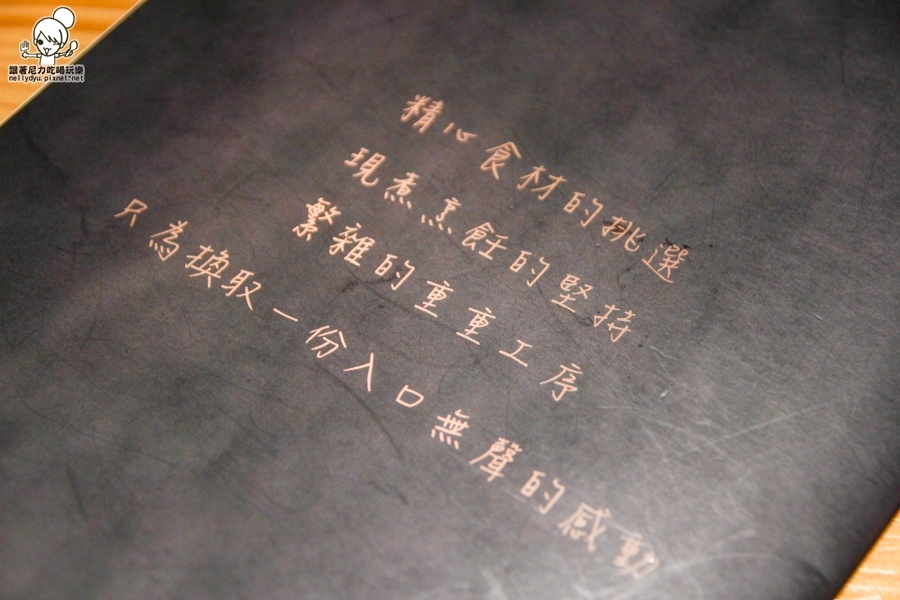 跟著尼力吃喝玩樂
nellydyu.pixnet.net
精心食材的挑選
現煮烹飪的堅持
繁雜的重重工序
只為換取一份入口無聲的感動